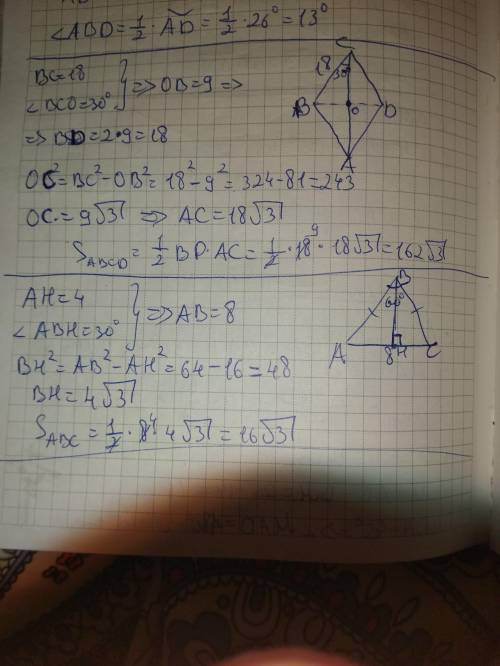 ∠ABD = 1/2 · AD = 1/2 · 26° = 13°
BC=18
∠BCO=30° } => OB=9 =>
=> BD=2·9=18
OC²=BC²-OB²=18²-9²=324-81=243
OC=9√3 => AC=18√3
S_ABCD = 1/2 BD·AC = 1/2 · 18 9 · 18√3 = 162√3
C
18
30°
B
O
D
A
AH=4
∠ABH=30° } => AB=8
BH²=AB²-AH²=64-16=48
BH=4√3
S_ABC = 1/2 · 8 4 · 4√3 = 16√3
B
60°
A
8
H
C